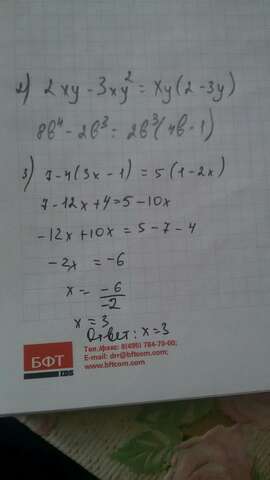 2) 2xy - 3xy² = xy(2 - 3y)
8b⁴ - 2b³ = 2b³(4b - 1)
3) 7 - 4(3x - 1) = 5(1 - 2x)
7 - 12x + 4 = 5 - 10x
-12x + 10x = 5 - 7 - 4
-2x = -6
x = -6/-2
x = 3
Ответ: x = 3
БФТ
Тел./факс: 8(495) 784-70-00;
E-mail: drr@bftcom.com;
www.bftcom.com